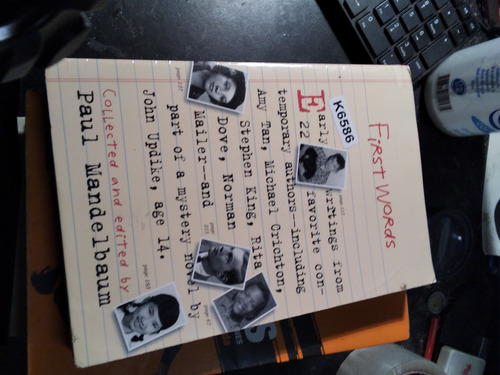 FIRST WORDS
K6586
Early writings from
22 favorite con-
temporary authors—including
Amy Tan, Michael Crichton,
Stephen King, Rita
Dove, Norman
Mailer——and
part of a mystery novel by
John Updike, age 14.
Collected and edited by
Paul Mandelbaum